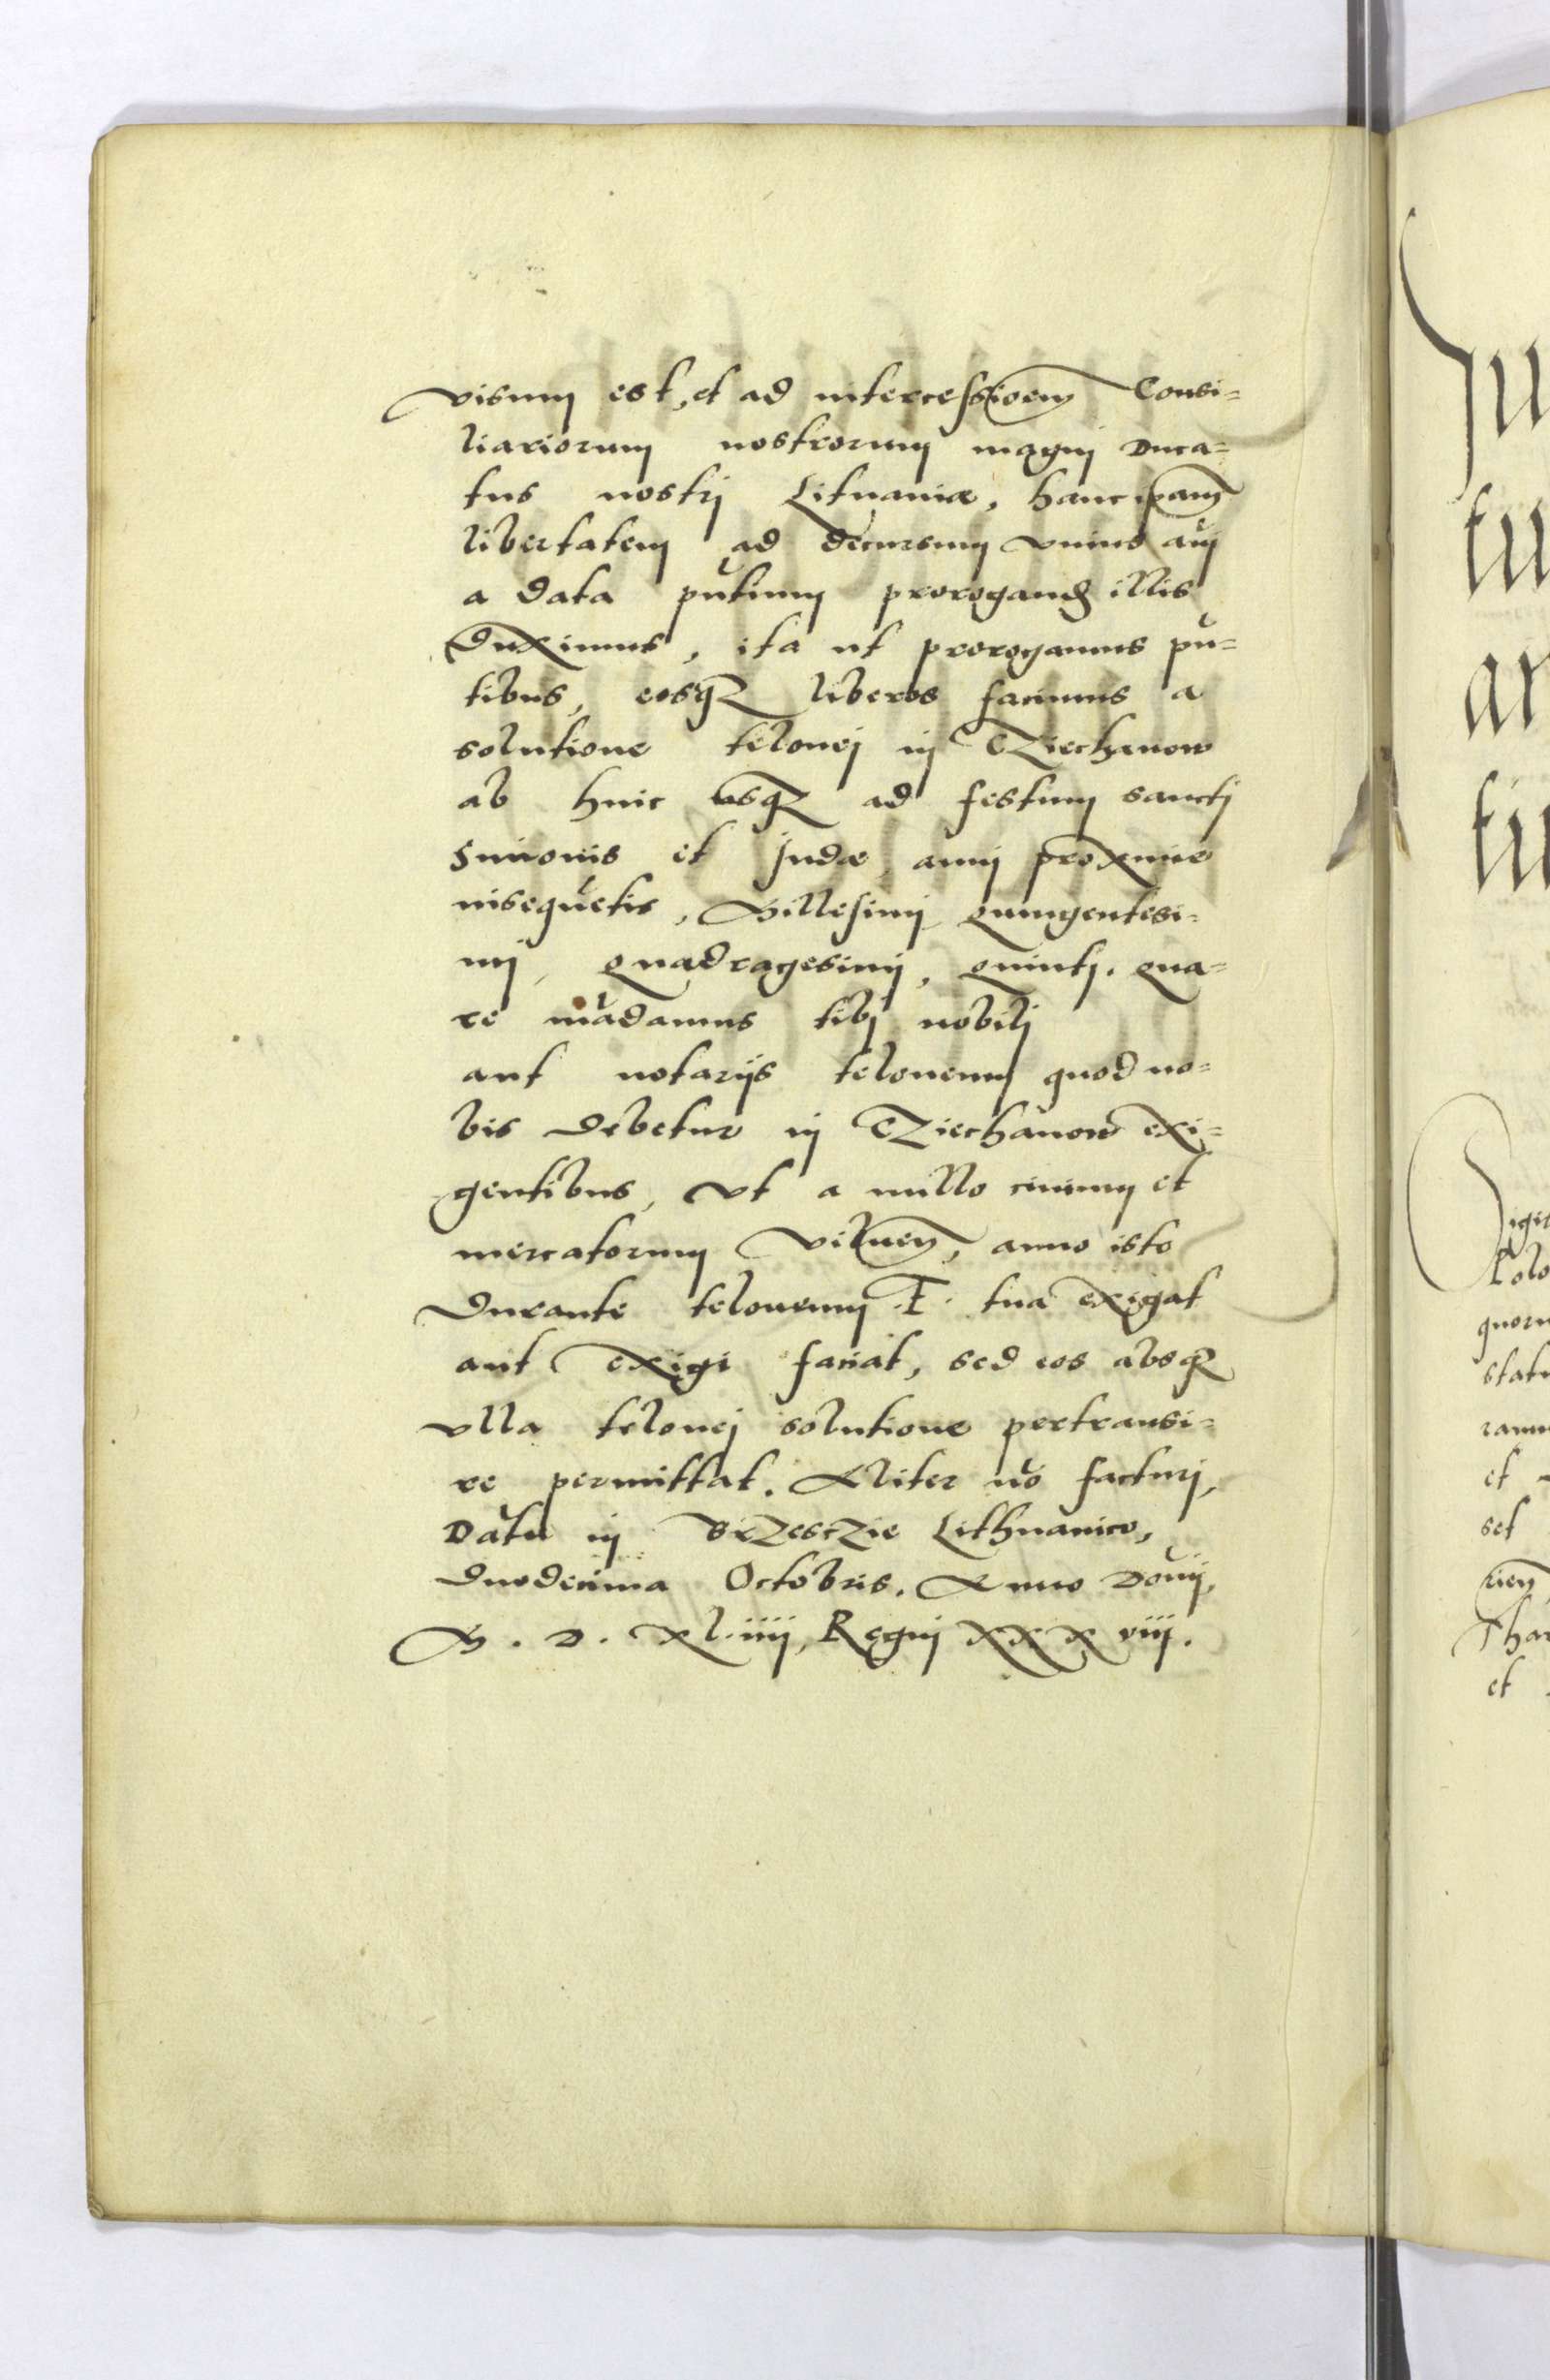 visum est, et ad intercessioem Consi=
liariorum nostrorum magni Duca=
tus nostri Lituaniæ, hanc ipam
libertatem ad decursum vnius ani
a data pntium prorogand illis
duximus, ita ut prorogamus pn=
tibus, eosq3 liberos facimus a
solutione telonei in CZiechanow
ab huic vsq3 ad festum sancti
Simonis et Judæ anni proxime
insequetis, Millesimi quingentesi=
mi, quadragesimi, quinti. qua=
re madamus tibi nobili
aut notarijs teloneum quod no=
bis debetur in CZiechanow exi=
gentibus, vt a nullo ciuium et
mercatorum Vilnen, anno isto
durante teloneum .F. tua exigat
aut exigi faciat, sed eos absq3
vlla telonei solutione pertransi=
re permittat. Aliter no facturi,
Datu in BrzesCzie Lithuanico,
duodecima Octobris. Anno Doni,
M. D. xl.iiij, Regni xxxviij.
Sigis
Polo
quoru
statu
ramu
et
set
Thar
et